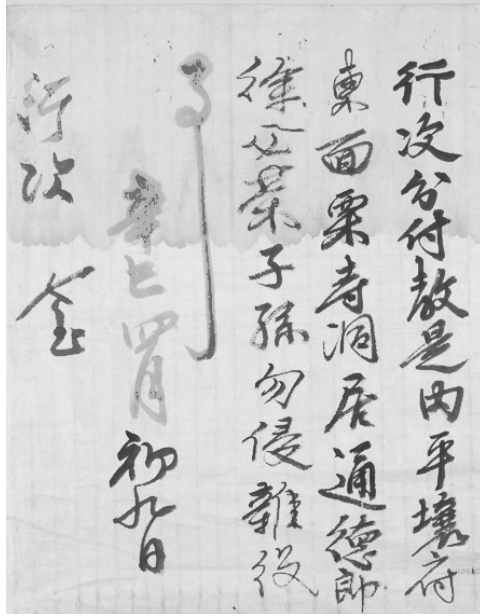 行次分付敎是內平壤府
東面栗寺洞居通德郎
徐必榮子孫勿侵雜役
事
辛巳四月初九日
行次 金